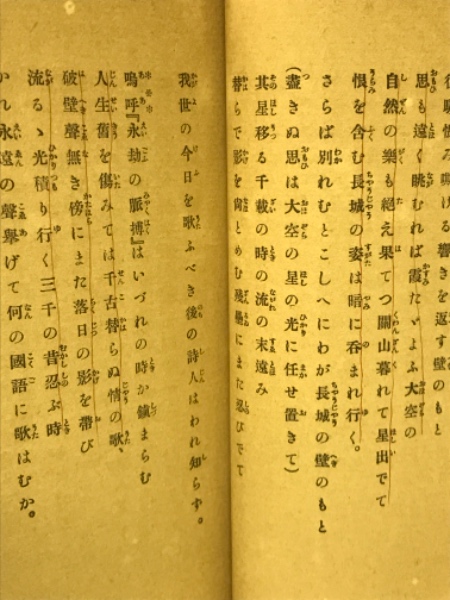 吸悵み鳴ける響きを返す壁のもと
思も遠く眺むれば霞たゞよふ大空の
自然の樂も絕え果てつ關山暮れて星出でて
恨を含む長城の姿は暗に呑まれ行く。
さらば別れむとこしへにわが長城の壁のもと
(盡きぬ思は大空の星の光に任せ置きて)
其星移る千載の時の流の末遠み
替らで影を尙とめむ殘壘にまた忍びでて
我世の今日を歌ふべき後の詩人はわれ知らず。
嗚呼『永劫の脈搏』はいづれの時か鎭まらむ
人生舊を傷みては千古替らぬ情の歌、
破壁聲無き傍にまた落日の影を帶び
流るゝ光積り行く三千の昔忍ぶ時
かれ永遠の聲擧げて何の國語に歌はむか。